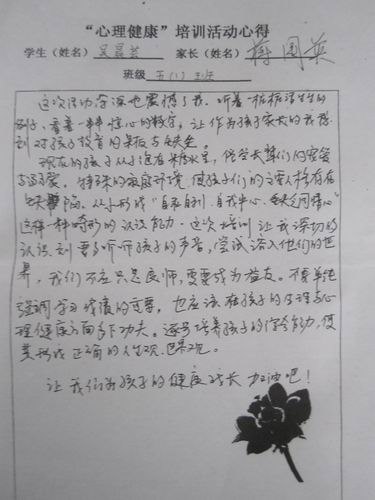 “心理健康”培训活动心得
学生（姓名） 吴晨芸 家长（姓名） 蒋国英
班级 五（1）班
这次活动深深地震憾了我．听着一桩桩活生生的
例子，看着一串串惊心的数字，让作为孩子家长的我感
到对孩子教育的呆板与缺失。
现在的孩子从小泡在蜜糖水里，倍受长辈们的宠爱
与溺爱。特殊的家庭环境使孩子们的主要人格存在
缺陷。从小形成“自私自利．自我中心．缺乏同情心”
这样一种畸形的认识能力。这次培训让我深切的
认识到要多听听孩子的声音，尝试溶入他们的世
界，我们不应只是良师，更要成为益友。不要单纯
强调学习成绩的重要，也应该在孩子的生理与心
理健康方面多下功夫。逐步培养孩子的综合能力，使
其形成正确的人生观．世界观。
让我们为孩子的健康成长加油吧！